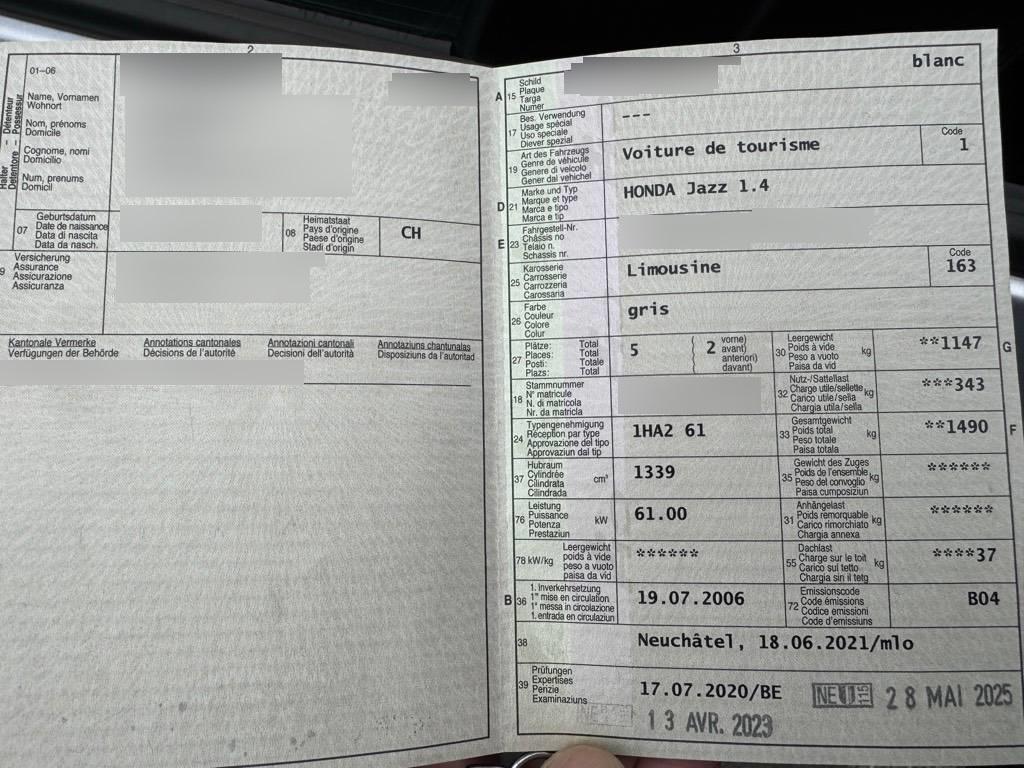 2
01–06
Name, Vornamen
Wohnort
Nom, prénoms
Domicile
Cognome, nomi
Domicilio
Num, prenums
Domicil
Halter – Détenteur
Detentore – Possessur
07
Geburtsdatum
Date de naissance
Data di nascita
Data da nasch.
08
Heimatstaat
Pays d'origine
Paese d'origine
Stadi d'origin
CH
9
Versicherung
Assurance
Assicurazione
Assicuranza
Kantonale Vermerke
Verfügungen der Behörde
Annotations cantonales
Décisions de l'autorité
Annotazioni cantonali
Decisioni dell'autorità
Annotaziuns chantunalas
Disposiziuns da l'autoritad
3
blanc
A 15
Schild
Plaque
Targa
Numer
17
Bes. Verwendung
Usage spécial
Uso speciale
Diever spezial
---
19
Art des Fahrzeugs
Genre de véhicule
Genere di veicolo
Gener dal vehichel
Voiture de tourisme
Code
1
D 21
Marke und Typ
Marque et type
Marca e tipo
Marca e tip
HONDA Jazz 1.4
E 23
Fahrgestell-Nr.
Châssis no
Telaio n.
Schassis nr.
25
Karosserie
Carrosserie
Carrozzeria
Carossaria
Limousine
Code
163
26
Farbe
Couleur
Colore
Colur
gris
27
Plätze: Total
Places: Total
Posti: Totale
Plazs: Total
5
2
vorne)
avant)
anteriori)
davant)
30
Leergewicht
Poids à vide
Peso a vuoto
Paisa da vid
kg
**1147
G
18
Stammnummer
N° matricule
N. di matricola
Nr. da matricla
32
Nutz-/Sattellast
Charge utile/sellette
Carico utile/sella
Chargia utila/sella
kg
***343
24
Typengenehmigung
Réception par type
Approvazione del tipo
Approvaziun dal tip
1HA2 61
33
Gesamtgewicht
Poids total
Peso totale
Paisa totala
kg
**1490
F
37
Hubraum
Cylindrée
Cilindrata
Cilindrada
cm³
1339
35
Gewicht des Zuges
Poids de l'ensemble
Peso del convoglio
Paisa cumposiziun
kg
******
76
Leistung
Puissance
Potenza
Prestaziun
kW
61.00
31
Anhängelast
Poids remorquable
Carico rimorchiato
Chargia annexa
kg
******
78 kW/kg
Leergewicht
poids à vide
peso a vuoto
paisa da vid
******
55
Dachlast
Charge sur le toit
Carico sul tetto
Chargia sin il tetg
kg
****37
B 36
1. Inverkehrsetzung
1re mise en circulation
1a messa in circolazione
1. entrada en circulaziun
19.07.2006
72
Emissionscode
Code émissions
Codice emissioni
Code d'emissiuns
B04
38
Neuchâtel, 18.06.2021/mlo
39
Prüfungen
Expertises
Perizie
Examinaziuns
17.07.2020/BE
NE 115 28 MAI 2025
13 AVR. 2023